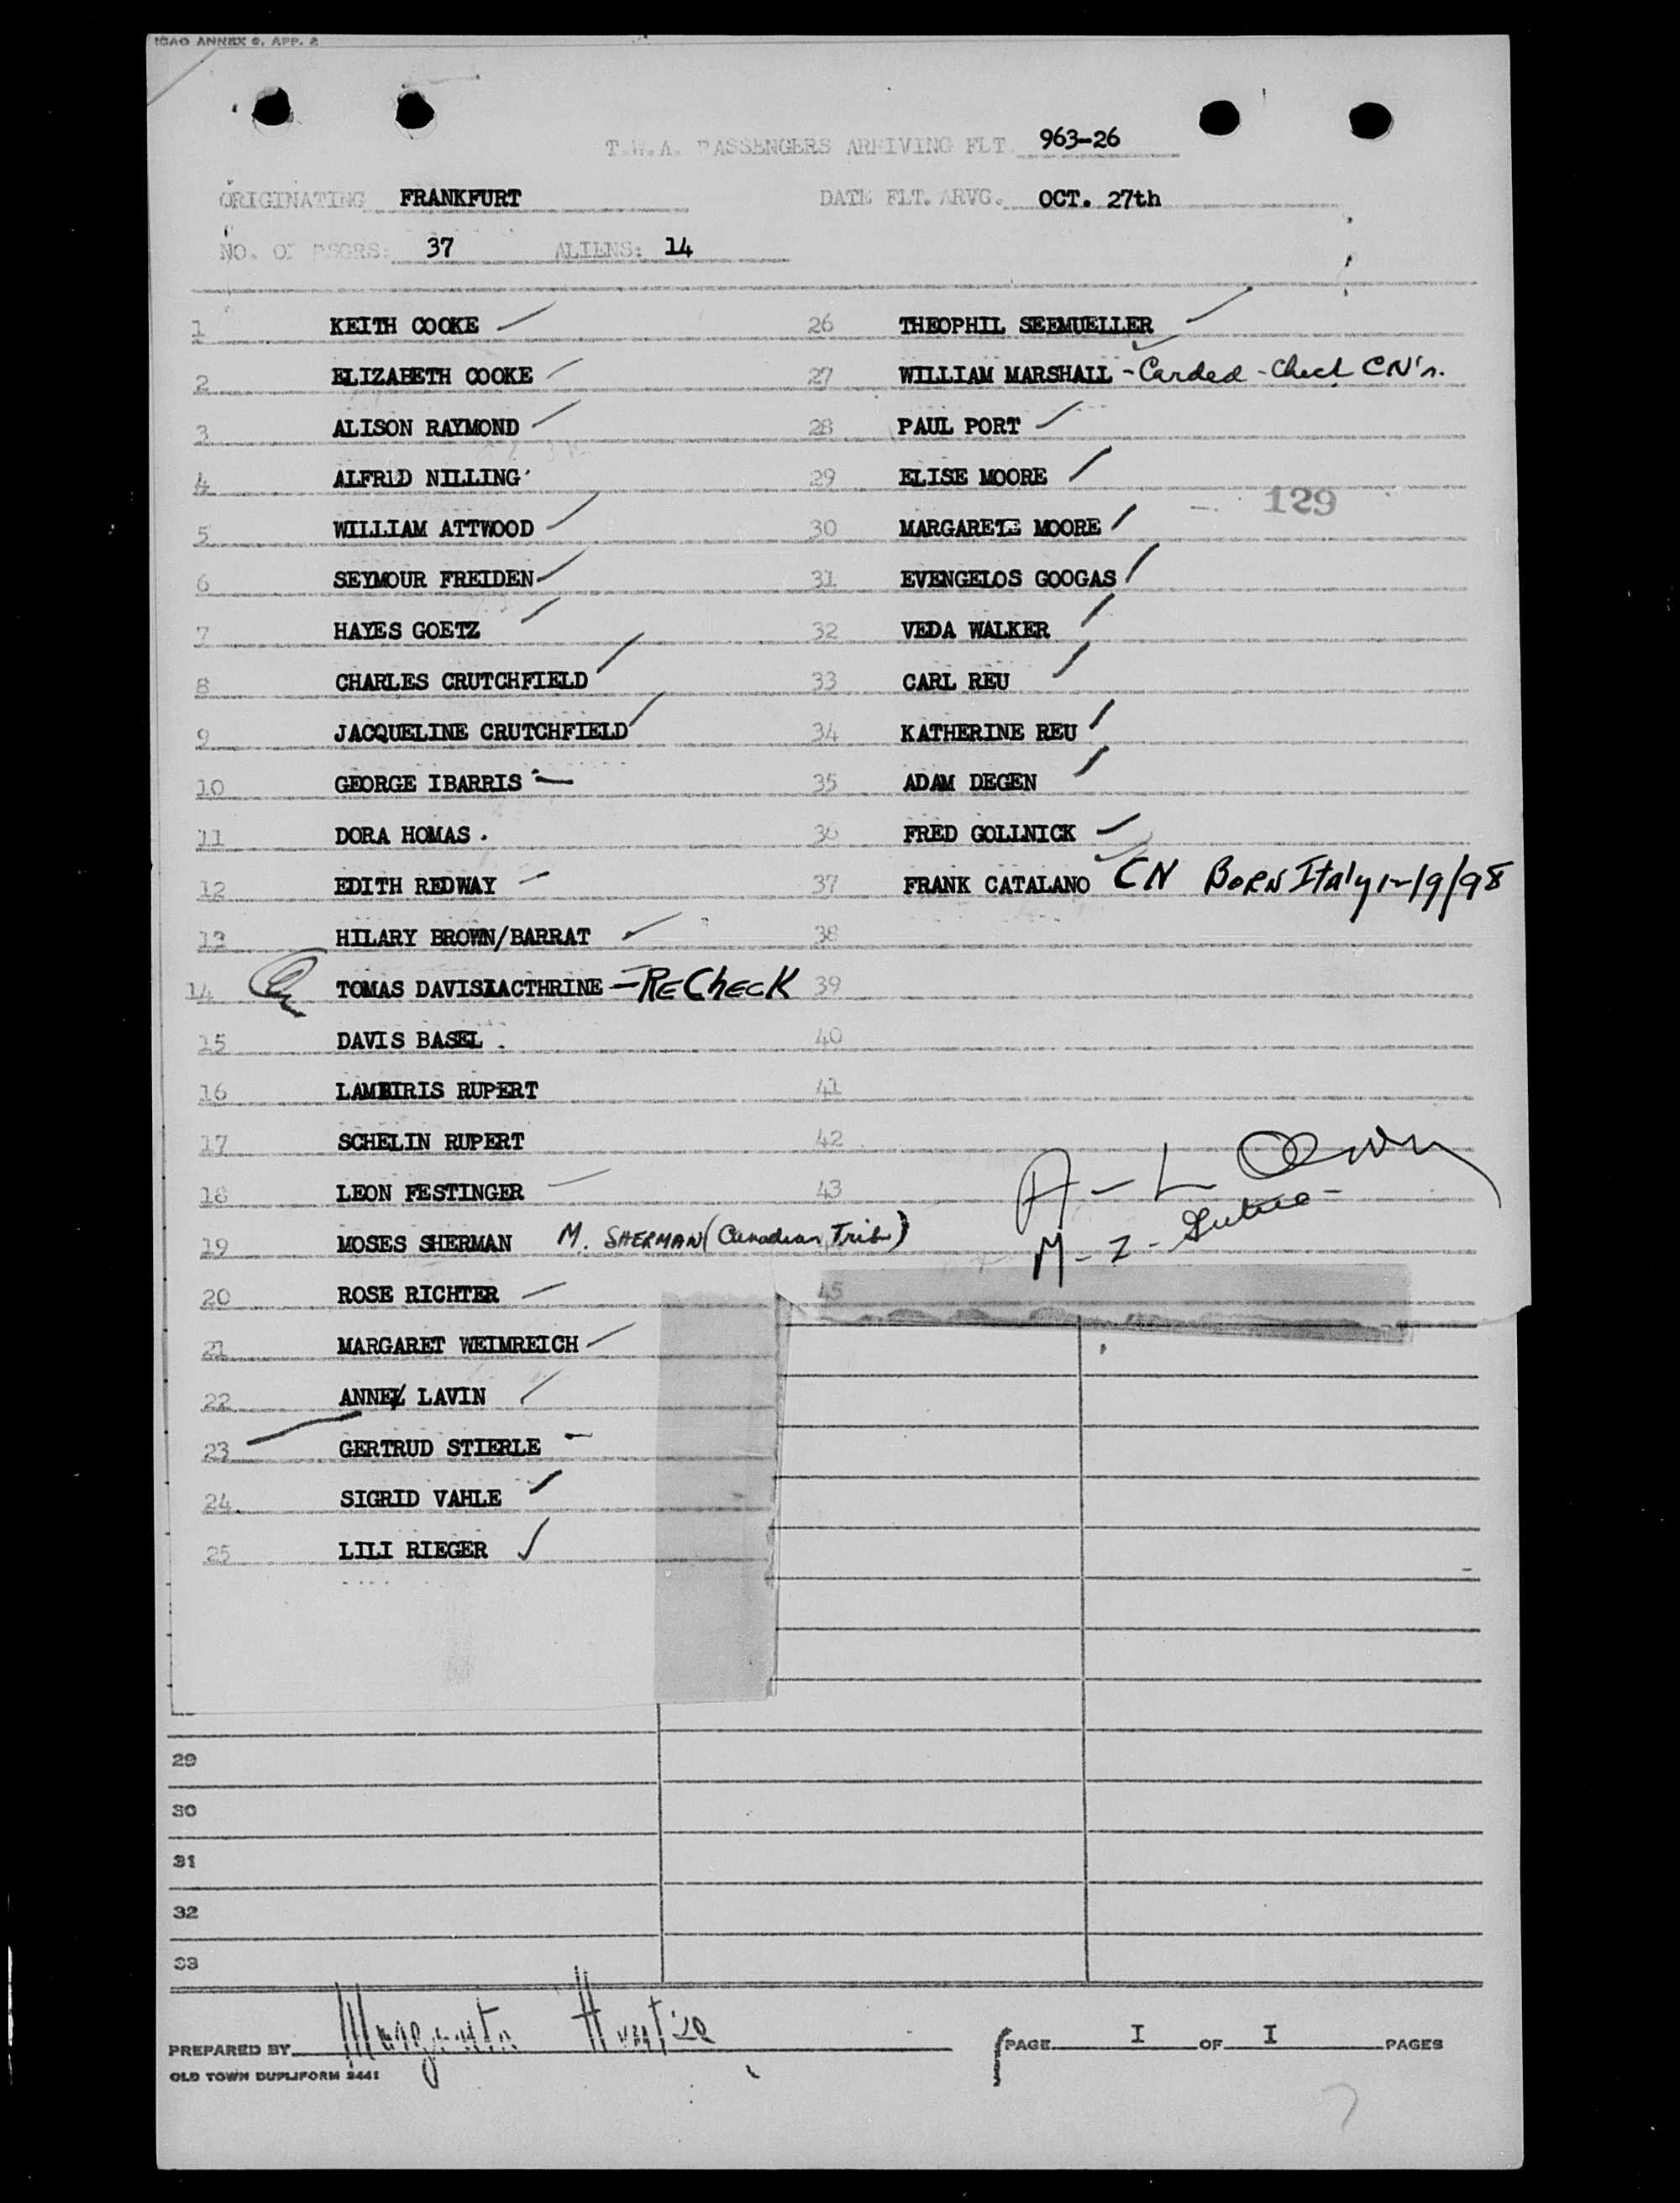 ICAO ANNEX 9, APP. 2
T.W.A. PASSENGERS ARRIVING FLT. 963-26
ORIGINATING FRANKFURT DATE FLT. ARVG. OCT. 27th
NO. OF PSGRS: 37 ALIENS: 14
1 KEITH COOKE
2 ELIZABETH COOKE
3 ALISON RAYMOND
4 ALFRED NILLING
5 WILLIAM ATTWOOD
6 SEYMOUR FREIDEN
7 HAYES GOETZ
8 CHARLES CRUTCHFIELD
9 JACQUELINE CRUTCHFIELD
10 GEORGE IBARRIS
11 DORA HOMAS
12 EDITH REDWAY
13 HILARY BROWN/BARRAT
14 TOMAS DAVISIACTHRINE - ReCheck
15 DAVIS BASEL
16 LAMBIRIS RUPERT
17 SCHELIN RUPERT
18 LEON FESTINGER
19 MOSES SHERMAN M. SHERMAN (Canadian Trib)
20 ROSE RICHTER
21 MARGARET WEIMREICH
22 ANNE LAVIN
23 GERTRUD STIERLE
24 SIGRID VAHLE
25 LILI RIEGER
26 THEOPHIL SEEMUELLER
27 WILLIAM MARSHALL - Carded - Check CN's.
28 PAUL PORT
29 ELISE MOORE
129
30 MARGARETE MOORE
31 EVENGELOS GOOGAS
32 VEDA WALKER
33 CARL REU
34 KATHERINE REU
35 ADAM DEGEN
36 FRED GOLLNICK
37 FRANK CATALANO CN BORN Italy 12/9/98
38
39
40
41
42
43
A - L
M - Z -
45
29
30
31
32
33
PREPARED BY
PAGE I OF I PAGES
OLD TOWN DUPLIFORM 3441